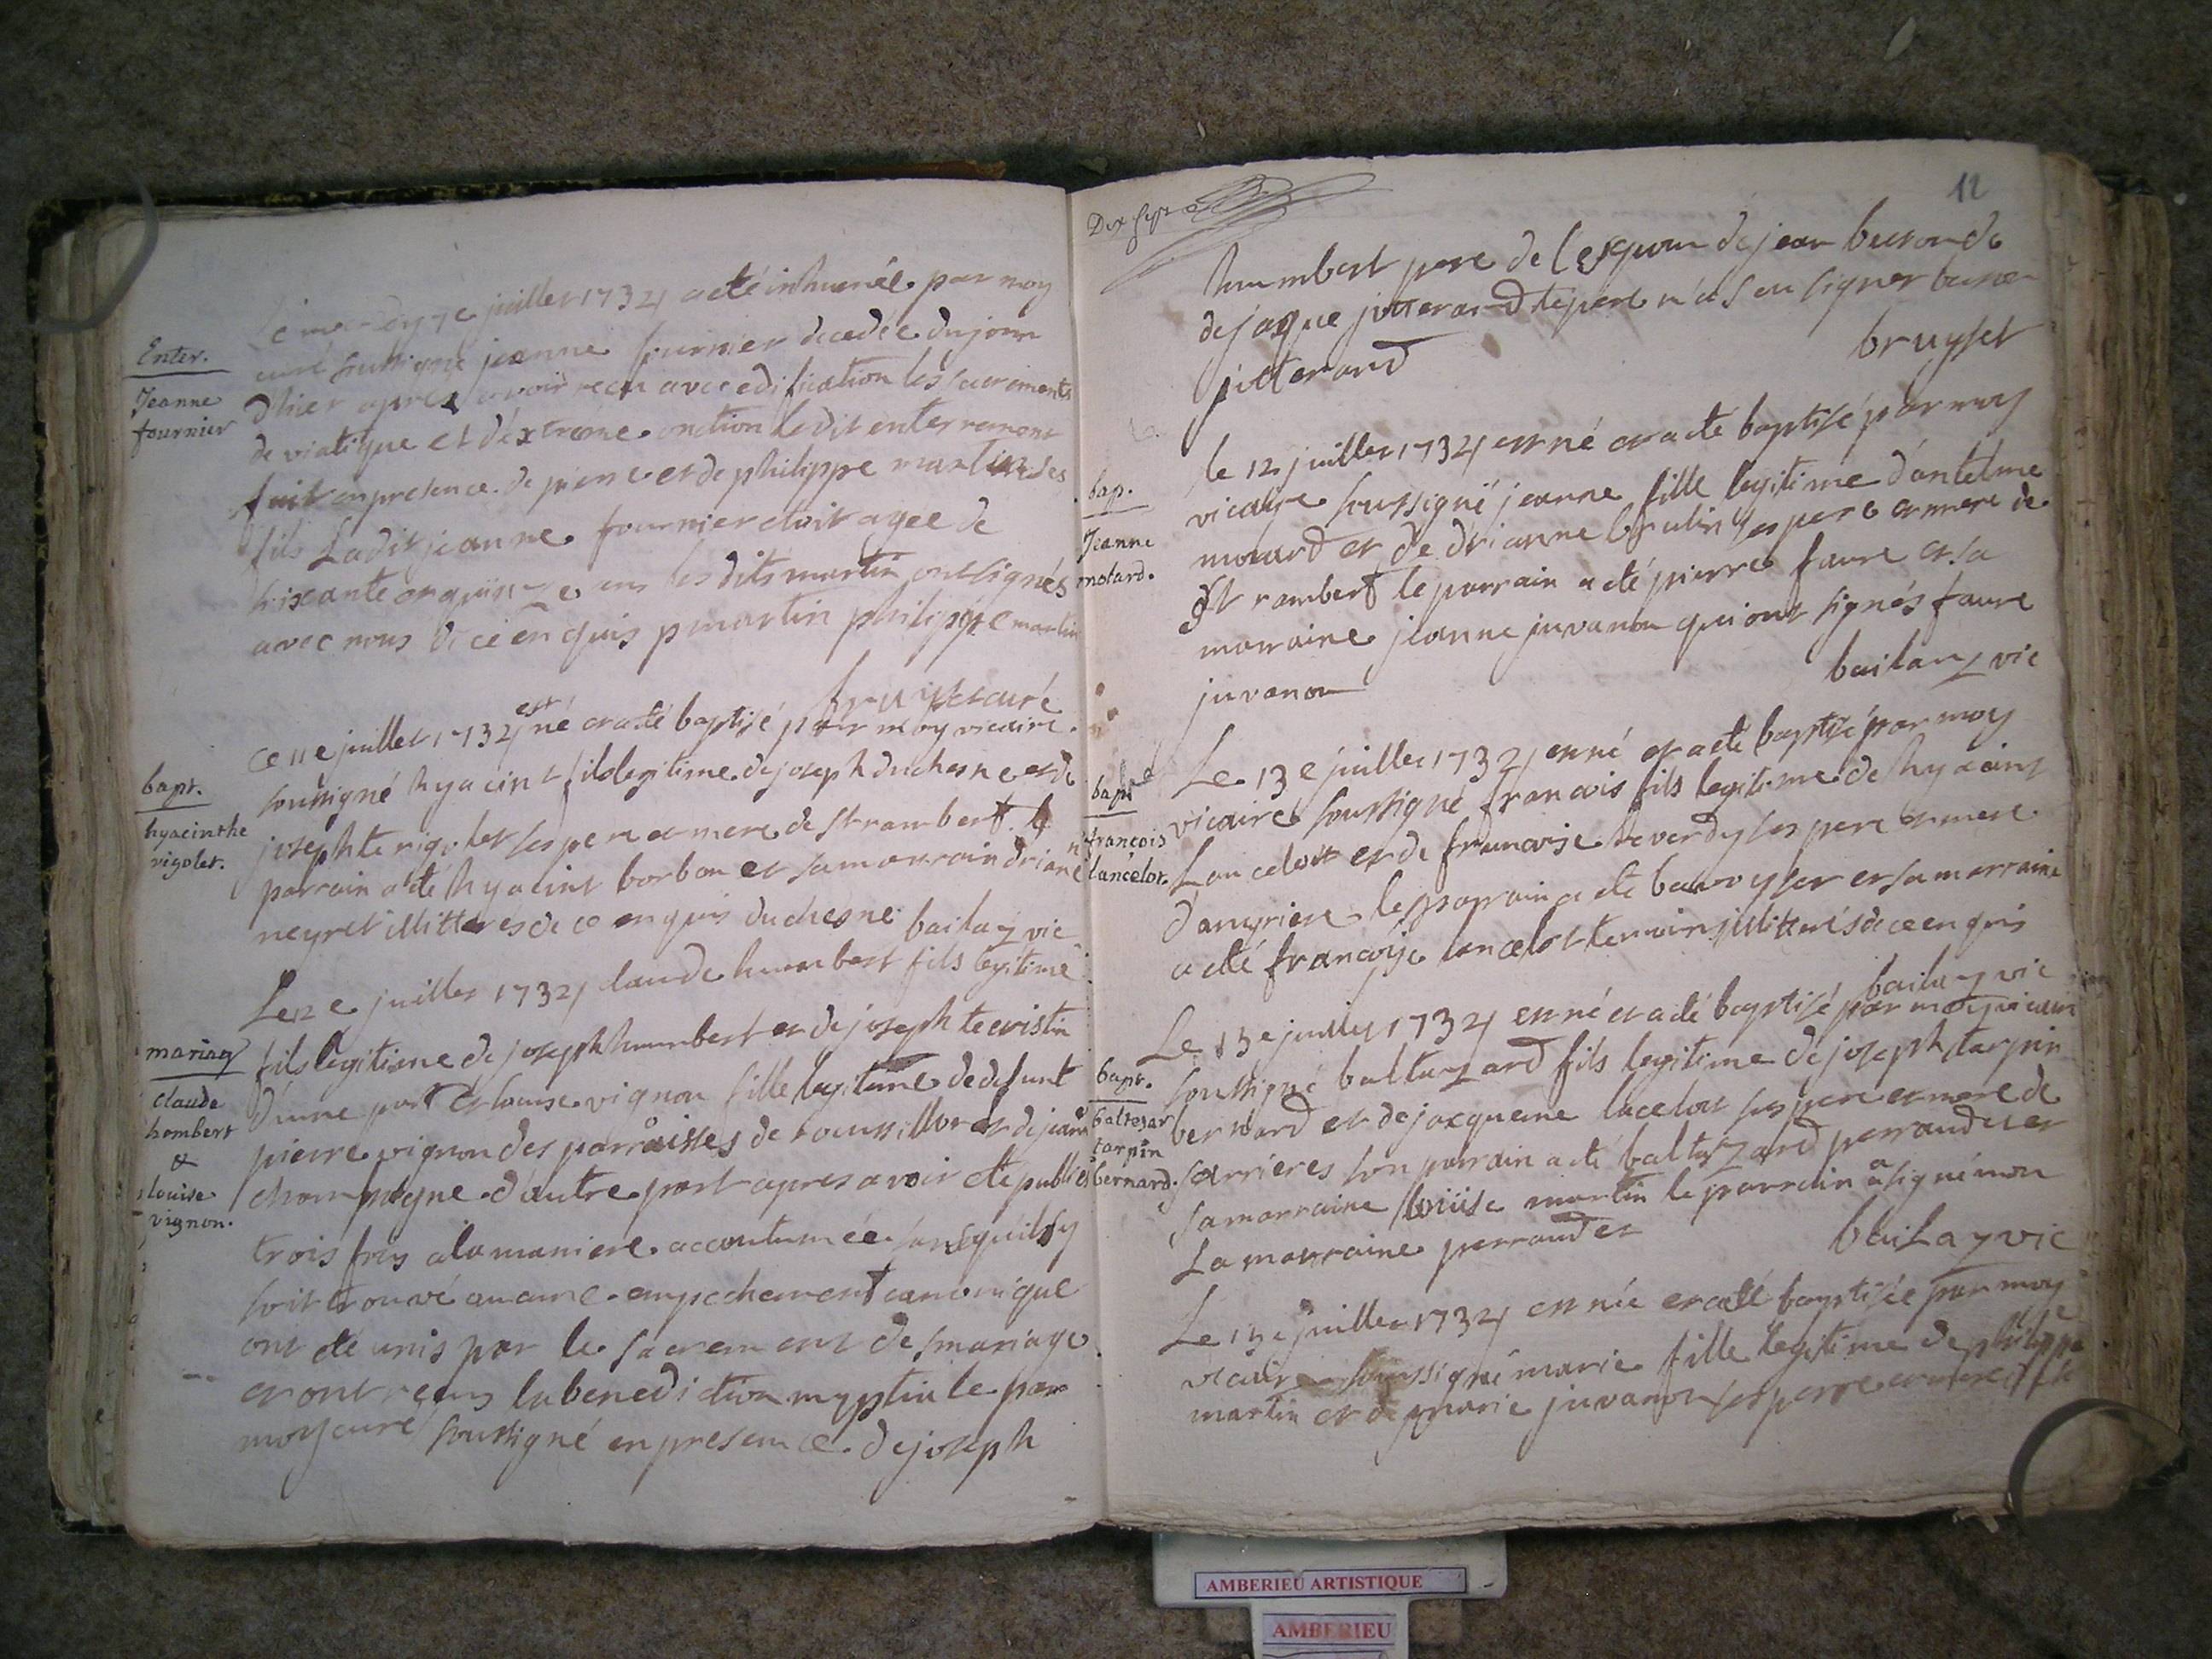 Enter.
Jeanne
fournier
juillet 1734 a eté inhumée par moy
curé soussigné jeanne fournier decedée du jour
d'hier apres avoir recu avec edification les sacrements
de viatique et d'extreme onction ledit enterrement
fait en presence de pierre et de philippe martin ses
fils Ladit jeanne fournier etoit agee de
ans lesdits martin ont signés
avec nous de ce enquis p martin philippe martin
bruyset curé
bapt.
hyacinthe
rigolet.
Ce 11e juillet 1734 est né et a eté baptisé par moy vicaire
soussigné hyacint fils legitime de joseph duchesne et de
josephte rigolet ses pere et mere de st rambert le
parrain a eté hyacint borbon et sa marrain driane
neyret illitterés de ce enquis duchesne bailazy vic
Le 12e juillet 1734 claude humbert fils legitime
mariag
claude
hombert
&
louise
vignon.
fils legitime de joseph humbert et de josephte cristin
d'une part et louise vignon fille legitime de defunt
pierre vignon des parroisses de roussillon et de jeane
champagne d'autre part apres avoir eté publies
trois fois a la maniere accoutumée sans quil sy
soit trouvé aucune empechement canonique
ont eté unis par le sacrement de mariage
et ont reçus la benediction nuptiale par
moy curé soussigné en presence de joseph
12
humbert pere de lespoux de jean buson de
de jaque jutterand le pere n'a seu signer
jutterand
bruyset
bap.
Jeanne
motard.
le 12 juillet 1734 est né et a eté baptisé par moy
vicayre soussigné jeanne fille legitime d'antelme
motard et de drianne brulin ses pere et mere de
St rambert le parrain a eté pierre faure et sa
marraine jeanne juvanon qui ont signés faure
juvanon
bailazy vic
bapt
françois
lancelot.
Le 13e juillet 1734 est né et a eté baptisé par moy
vicaire soussigné francois fils legitime de hyacint
Lancelott et de francoise deverdy ses pere et mere
d'angrieres le parrain a eté et sa marraine
a eté francoise lancelot illitterés de ce enquis
bailazy vic
bapt.
baltesar
tarpin
bernard.
Le 13e juillet 1734 est né et a eté baptisé par moy vicaire
soussigné baltazard fils legitime de joseph tarpin
bernard et de jacqueme lacelott ses pere et mere de
sarrieres son parrain a eté baltazard perraudet et
sa marraine louise martin le parrain a signé non
La marraine perraudet
bailazy vic
Le 13e juillet 1734 est née et a eté baptisée par moy
vicaire soussigné marie fille legitime de philippe
martin et de marie juvanon ses pere et mere
AMBERIEU ARTISTIQUE
AMBERIEU